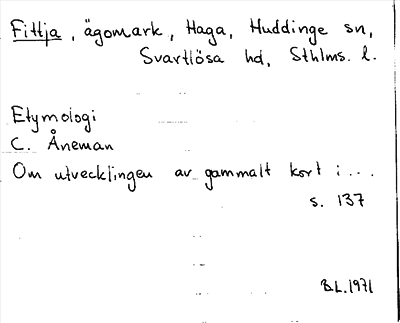 Fittja, ägomark, Haga, Huddinge sn,
Svartlösa hd, Sthlms. l.
Etymologi
C. Åneman
Om utvecklingen av gammalt kort i...
s. 137
B.L.1971